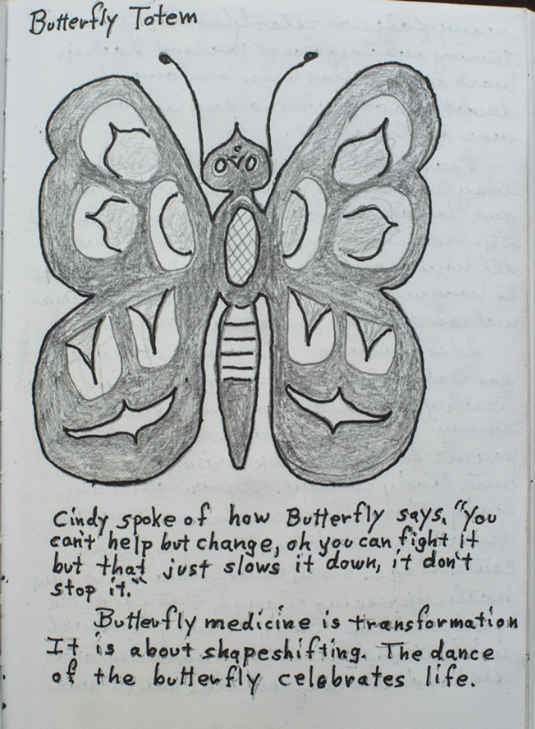 Butterfly Totem
Cindy spoke of how Butterfly says, "You
can't help but change, oh you can fight it
but that just slows it down, it don't
stop it."
Butterfly medicine is transformation
It is about shapeshifting. The dance
of the butterfly celebrates life.